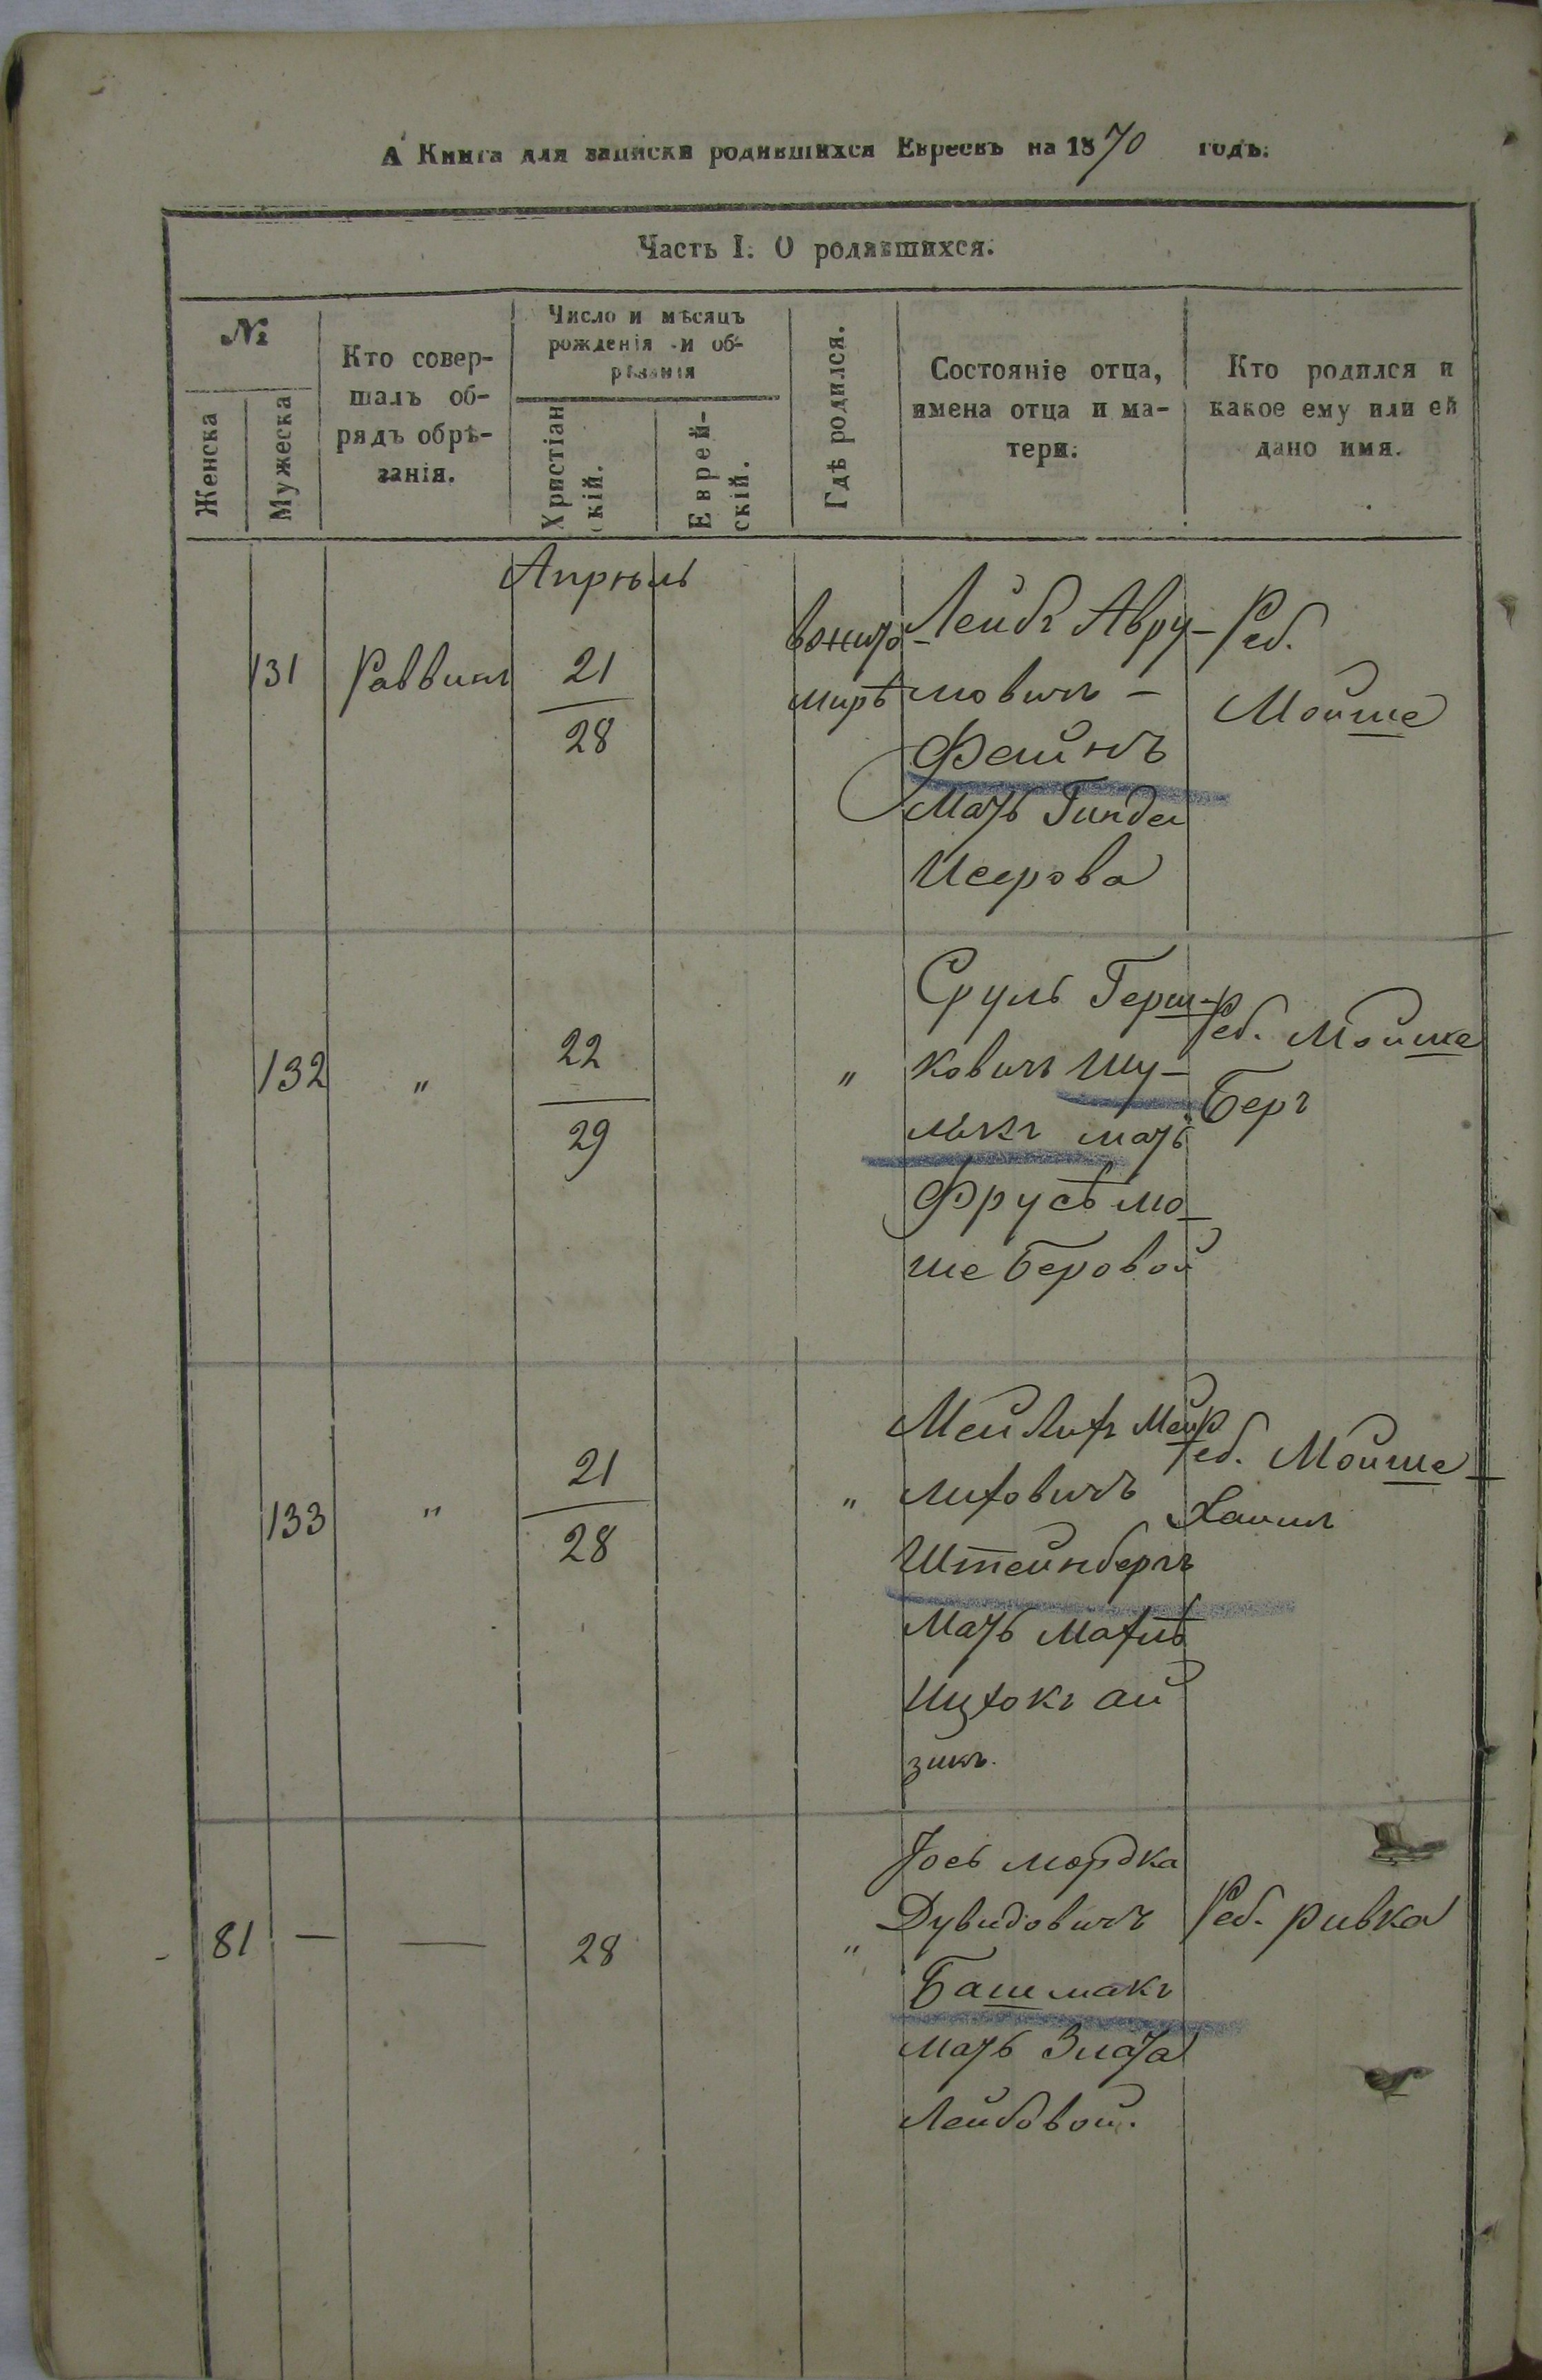 А Книга для записки родившихся Евреевъ на 1870 годъ.
Часть I. О родившихся.
№
Женска
Мужеска
Кто совер-
шалъ об-
рядъ обрѣ-
занія.
Число и мѣсяцъ
рожденія и об-
рѣзанія
Христіан
скій.
Еврей-
скій.
Гдѣ родился.
Состояніе отца,
имена отца и ма-
тери.
Кто родился и
какое ему или ей
дано имя.
Апрѣль
131
Раввинъ
21
28
мирѣ
Лейбъ Авру-
мовичъ -
Файнъ
мать Гинда
Исерова
Реб.
Мойше
132
"
22
29
"
Сруль Герш-
ковичъ Шу-
лькъ мать
Фрусѣ мо-
ше Беровой
Реб. Мойше
Беръ
133
"
21
28
"
Мейлихъ Мей
лиховичъ
Штейнбергъ
мать Махлѣ
Ицхокъ Ай
зикъ.
Реб. Мойше
Хаимъ
81
—
—
28
"
Іось Мордка
Дувидовичъ
Башмакъ
мать Злата
Лейбовой.
Реб. Ривка